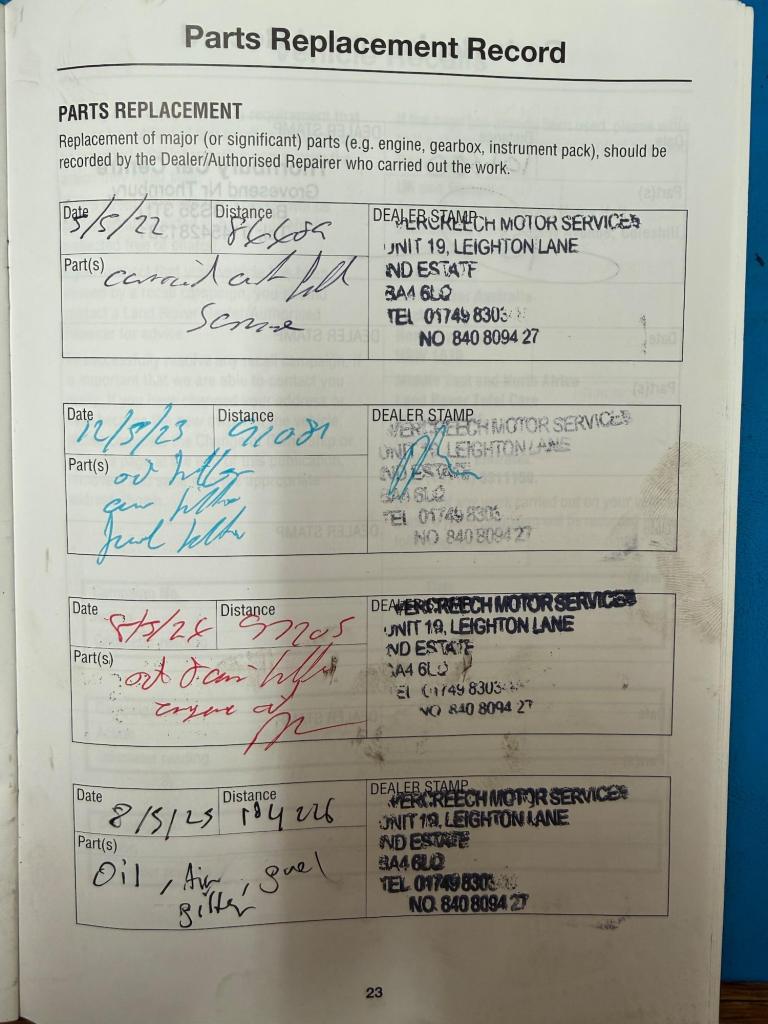 Parts Replacement Record
PARTS REPLACEMENT
Replacement of major (or significant) parts (e.g. engine, gearbox, instrument pack), should be
recorded by the Dealer/Authorised Repairer who carried out the work.
Date 5/5/22 Distance 84489 DEALER STAMP
VERCREECH MOTOR SERVICES
UNIT 19, LEIGHTON LANE
IND ESTATE
BA4 6LQ
TEL 01749 8303
NO 840 8094 27
Part(s) carried out full
Date 12/5/23 Distance 91081 DEALER STAMP
VERCREECH MOTOR SERVICES
UNIT 19, LEIGHTON LANE
IND ESTATE
BA4 6LQ
TEL 01749 8303
NO 840 8094 27
Part(s) oil filter
air filter
fuel filter
Date 8/5/24 Distance 97205
VERCREECH MOTOR SERVICES
UNIT 19, LEIGHTON LANE
IND ESTATE
BA4 6LQ
TEL 01749 8303
NO 840 8094 27
Part(s) oil & air filter
engine oil
Date 8/5/25 Distance 104226 DEALER STAMP
VERCREECH MOTOR SERVICES
UNIT 19, LEIGHTON LANE
IND ESTATE
BA4 6LQ
TEL 01749 8303
NO 840 8094 27
Part(s)
Oil, Air, fuel
filter
23